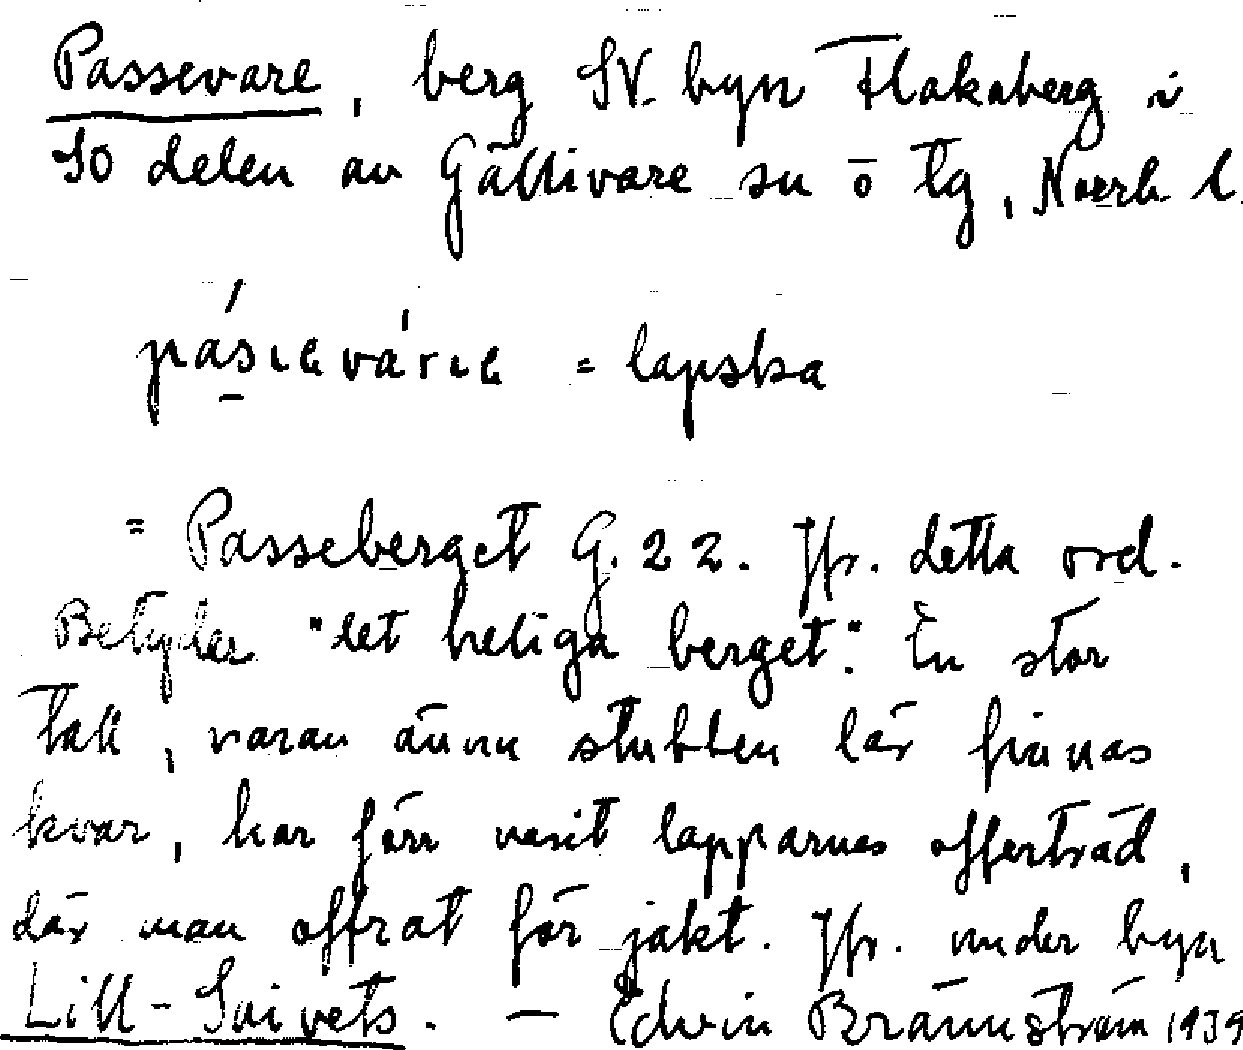 Passevare, berg SV. byn Flakaberg i
SO delen av Gällivare sn o tg, Norrb l.
pásievárie = lapska
= Passeberget G. 22. Jfr. detta ord.
Betyder "det heliga berget". En stor
tall, varav ännu stubben lär finnas
kvar, har förr varit lapparnes offerträd,
där man offrat för jakt. Jfr. under byn
Lill-Saivets. — Edvin Brännström 1939